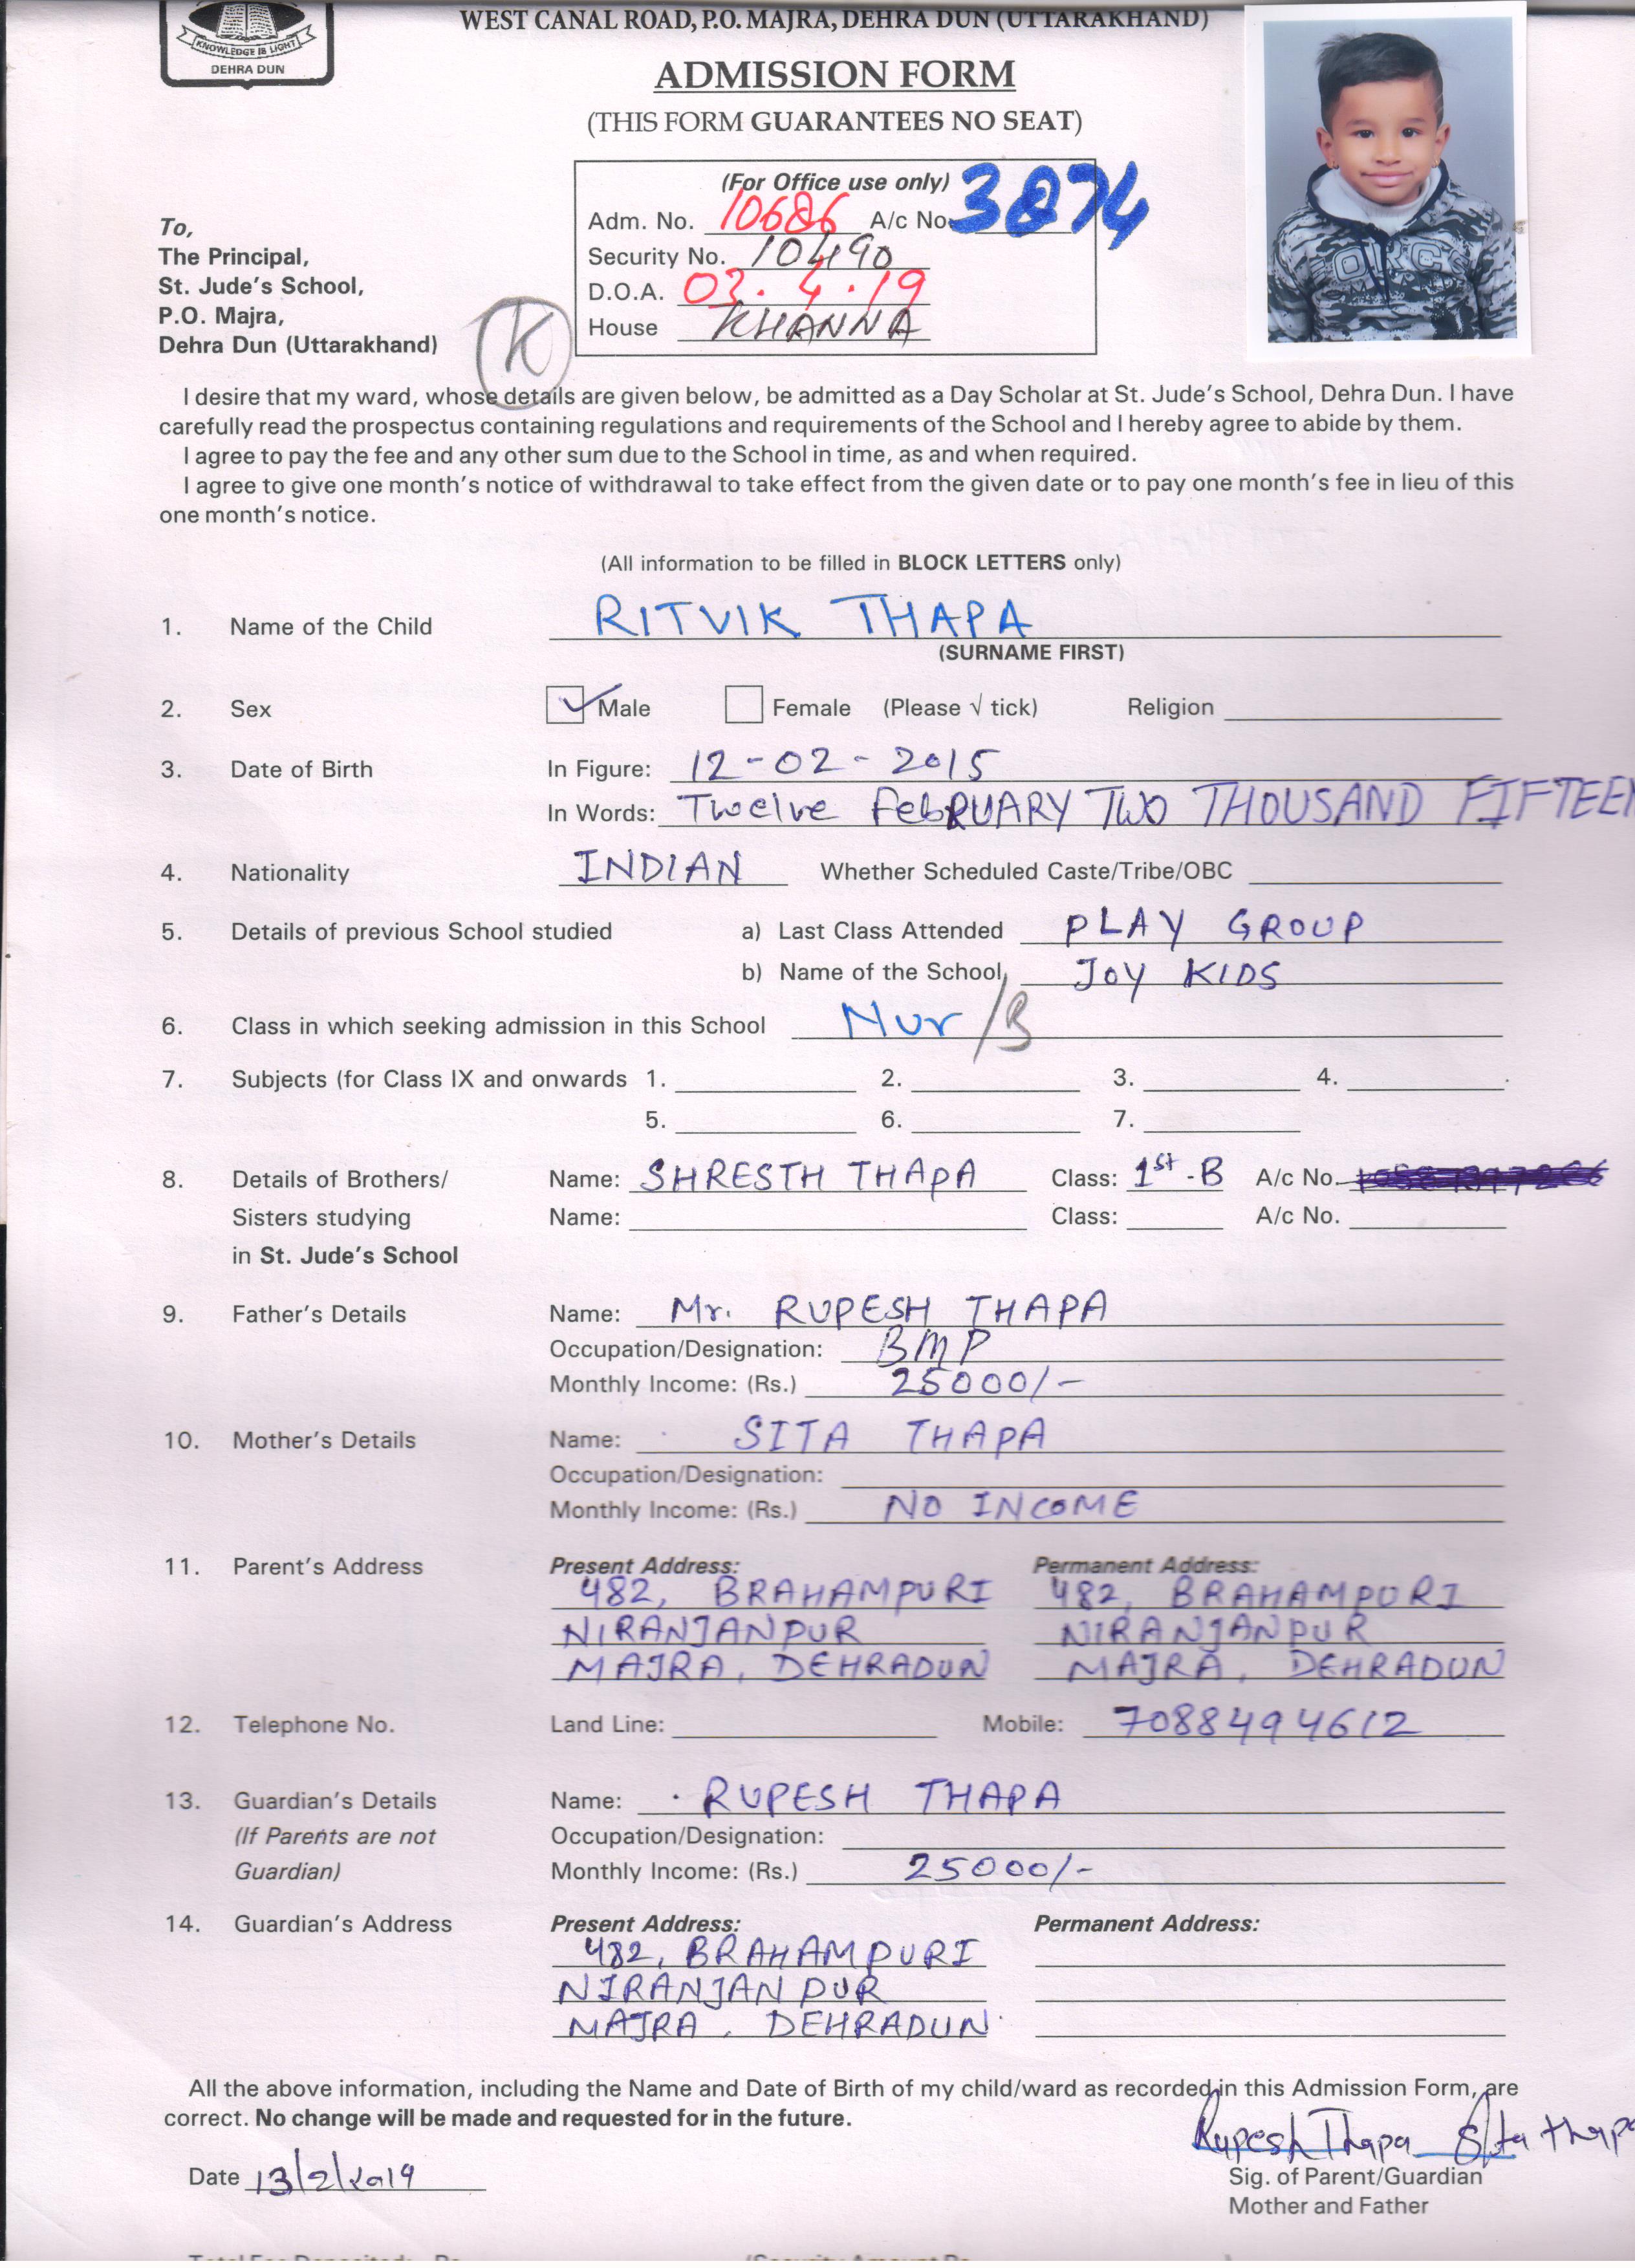 WEST CANAL ROAD, P.O. MAJRA, DEHRA DUN (UTTARAKHAND)
KNOWLEDGE IS LIGHT
DEHRA DUN
ADMISSION FORM
(THIS FORM GUARANTEES NO SEAT)
(For Office use only)
Adm. No. 10686 A/c No. 3874
Security No. 10490
D.O.A. 03.4.19
House KHANNA
To,
The Principal,
St. Jude's School,
P.O. Majra,
Dehra Dun (Uttarakhand)
K
I desire that my ward, whose details are given below, be admitted as a Day Scholar at St. Jude's School, Dehra Dun. I have
carefully read the prospectus containing regulations and requirements of the School and I hereby agree to abide by them.
I agree to pay the fee and any other sum due to the School in time, as and when required.
I agree to give one month's notice of withdrawal to take effect from the given date or to pay one month's fee in lieu of this
one month's notice.
(All information to be filled in BLOCK LETTERS only)
1. Name of the Child RITVIK THAPA
(SURNAME FIRST)
2. Sex ✓ Male Female (Please √ tick) Religion
3. Date of Birth In Figure: 12-02-2015
In Words: Twelve FebRUARY TWO THOUSAND FIFTEEN
4. Nationality INDIAN Whether Scheduled Caste/Tribe/OBC
5. Details of previous School studied a) Last Class Attended PLAY GROUP
b) Name of the School JOY KIDS
6. Class in which seeking admission in this School Nur/B
7. Subjects (for Class IX and onwards 1. 2. 3. 4.
5. 6. 7.
8. Details of Brothers/ Name: SHRESTH THAPA Class: 1st-B A/c No.
Sisters studying Name: Class: A/c No.
in St. Jude's School
9. Father's Details Name: Mr. RUPESH THAPA
Occupation/Designation: BMP
Monthly Income: (Rs.) 25000/-
10. Mother's Details Name: SITA THAPA
Occupation/Designation:
Monthly Income: (Rs.) NO INCOME
11. Parent's Address Present Address: Permanent Address:
482, BRAHAMPURI 482, BRAHAMPURI
NIRANJANPUR NIRANJANPUR
MAJRA, DEHRADUN MAJRA, DEHRADUN
12. Telephone No. Land Line: Mobile: 7088494612
13. Guardian's Details Name: RUPESH THAPA
(If Parents are not Occupation/Designation:
Guardian) Monthly Income: (Rs.) 25000/-
14. Guardian's Address Present Address: Permanent Address:
482, BRAHAMPURI
NIRANJAN PUR
MAJRA, DEHRADUN
All the above information, including the Name and Date of Birth of my child/ward as recorded in this Admission Form, are
correct. No change will be made and requested for in the future.
Rupesh Thapa Sita thapa
Date 13/2/2019
Sig. of Parent/Guardian
Mother and Father